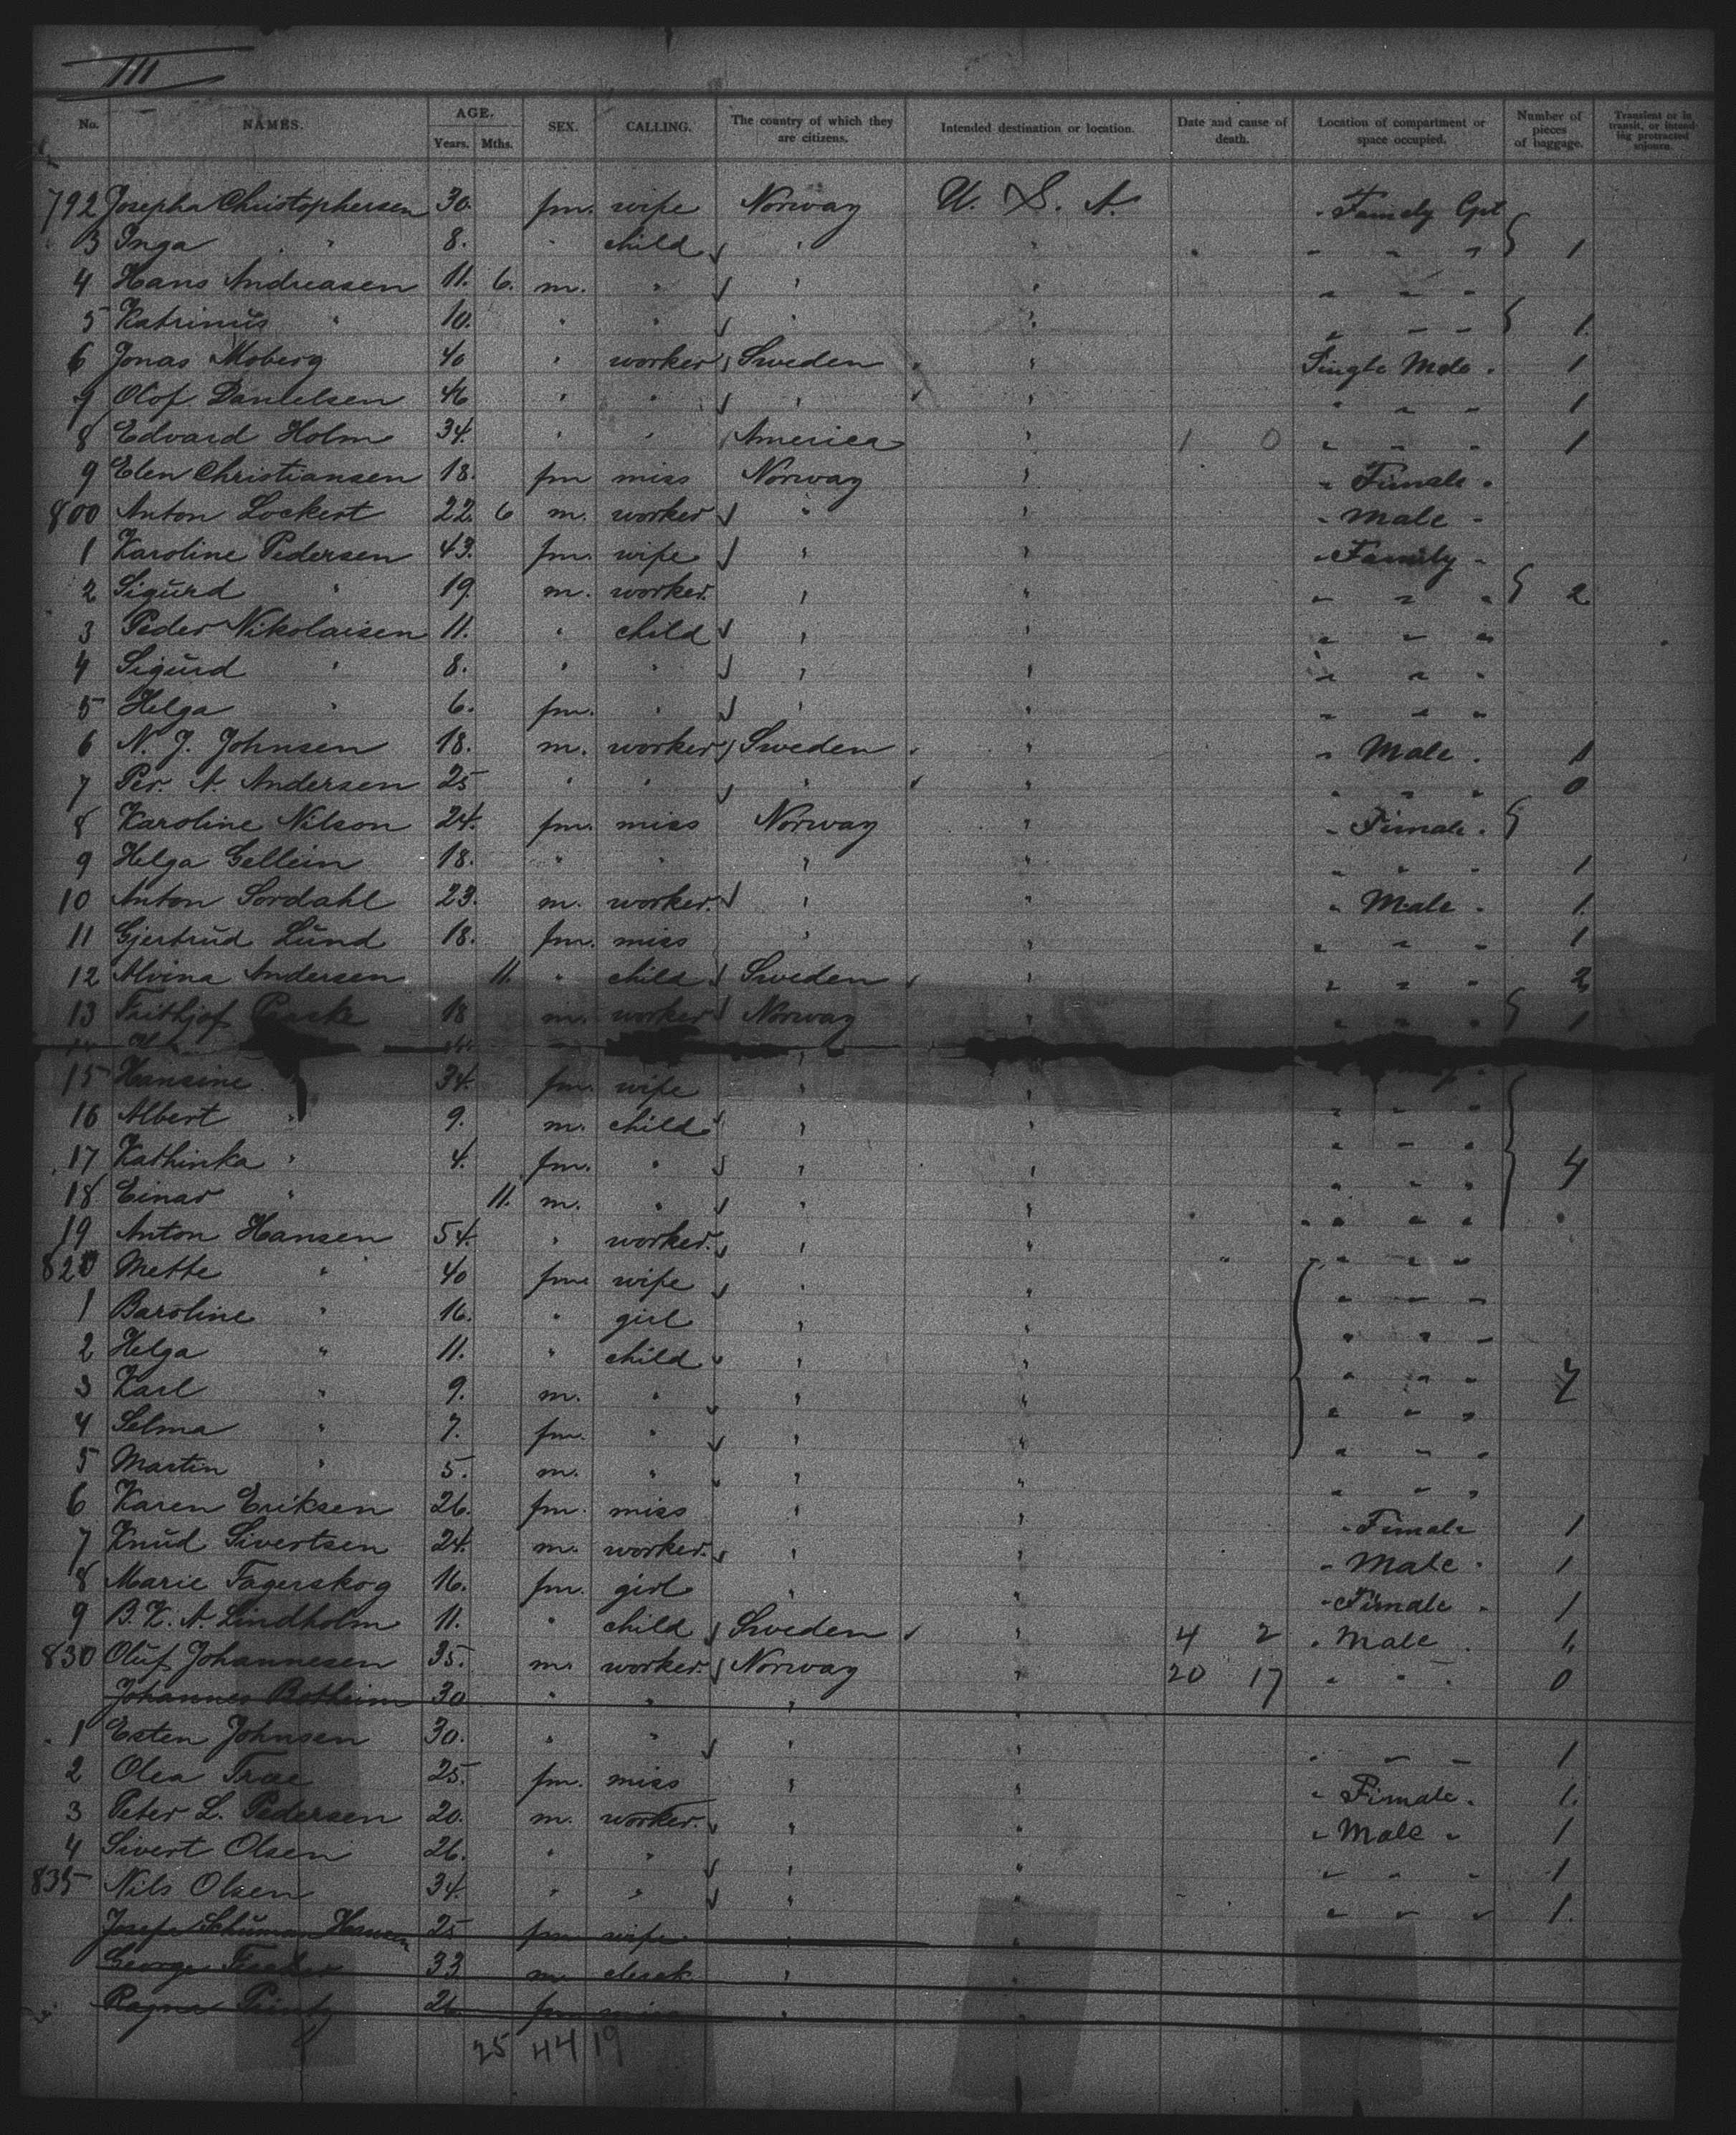 III
No. NAMES. AGE. Years. Mths. SEX. CALLING. The country of which they are citizens. Intended destination or location. Date and cause of death. Location of compartment or space occupied. Number of pieces of baggage. Transient or in transit, or intending protracted sojourn.
792 Josepha Christophersen 30. fm. wife Norway U. S. A. " Family Cpt
3 Inga " 8. " child " " " " " 1
4 Hans Andreasen 11. 6. m. " " " " " "
5 Katrinus " 10. " " " " " " " 1.
6 Jonas Moberg 40 " worker Sweden " Single Male " 1
7 Olof Danielsen 46 " " " " " " " 1
8 Edvard Holm 34. " " America " 1 0 " " " 1
9 Elen Christiansen 18. fm miss Norway " " Fimale "
800 Anton Lockert 22. 6 m. worker " " " Male "
1 Karoline Pedersen 43. fm. wife " " " Family "
2 Sigurd " 19. m. worker. " " " " " 2
3 Peder Nikolaisen 11. " child " " " " "
4 Sigurd " 8. " " " " " " "
5 Helga " 6. fm. " " " " " "
6 N. J. Johnsen 18. m. worker Sweden " " Male " 1
7 Per. A. Andersen 25 " " " " " " " 0
8 Karoline Nilson 24. fm. miss Norway " " Fimale "
9 Helga Gellein 18. " " " " " " " 1
10 Anton Sordahl 23. m. worker. " " " Male " 1.
11 Gjertrud Lund 18. fm. miss " " " " " 1
12 Alvina Andersen 11. " child Sweden " " " " 2
13 Frithjof 18 m. worker Norway " " " " 1
15 Hansine " 34. fm. wife " " " " "
16 Albert " 9. m. child " " " " "
17 Kathinka " 4. fm. " " " " " " 4
18 Einar " 11. m. " " " " " "
19 Anton Hansen 54. " worker. " " " " "
820 Mette " 40 fm. wife " " " " "
1 Baroline " 16. " girl " " " " "
2 Helga " 11. " child " " " " "
3 Karl " 9. m. " " " " " "
4 Selma " 7. fm. " " " " " "
5 Martin " 5. m. " " " " " "
6 Karen Eriksen 26. fm. miss " " " Fimale 1
7 Knud Sivertsen 24. m. worker. " " " Male " 1
8 Marie Fagerskog 16. fm. girl " " " Fimale " 1
9 B. K. A. Lindholm 11. " child Sweden " 4 2 " Male " 1.
830 Oluf Johannesen 35. m. worker. Norway " 20 17 " " " 0
Johannes Botheim 30 " " " "
1 Esten Johnsen 30. " " " " " " " 1
2 Olea Trae 25. fm. miss " " " Fimale " 1.
3 Peter L. Pedersen 20. m. worker. " " " Male " 1
4 Sivert Olsen 26. " " " " " " " 1
835 Nils Olsen 34. " " " " " " " 1.
Schuman Hansen 25 fm wife " "
George 33 m. clerk " "
Ragna 26 fm miss " "
25 44 19